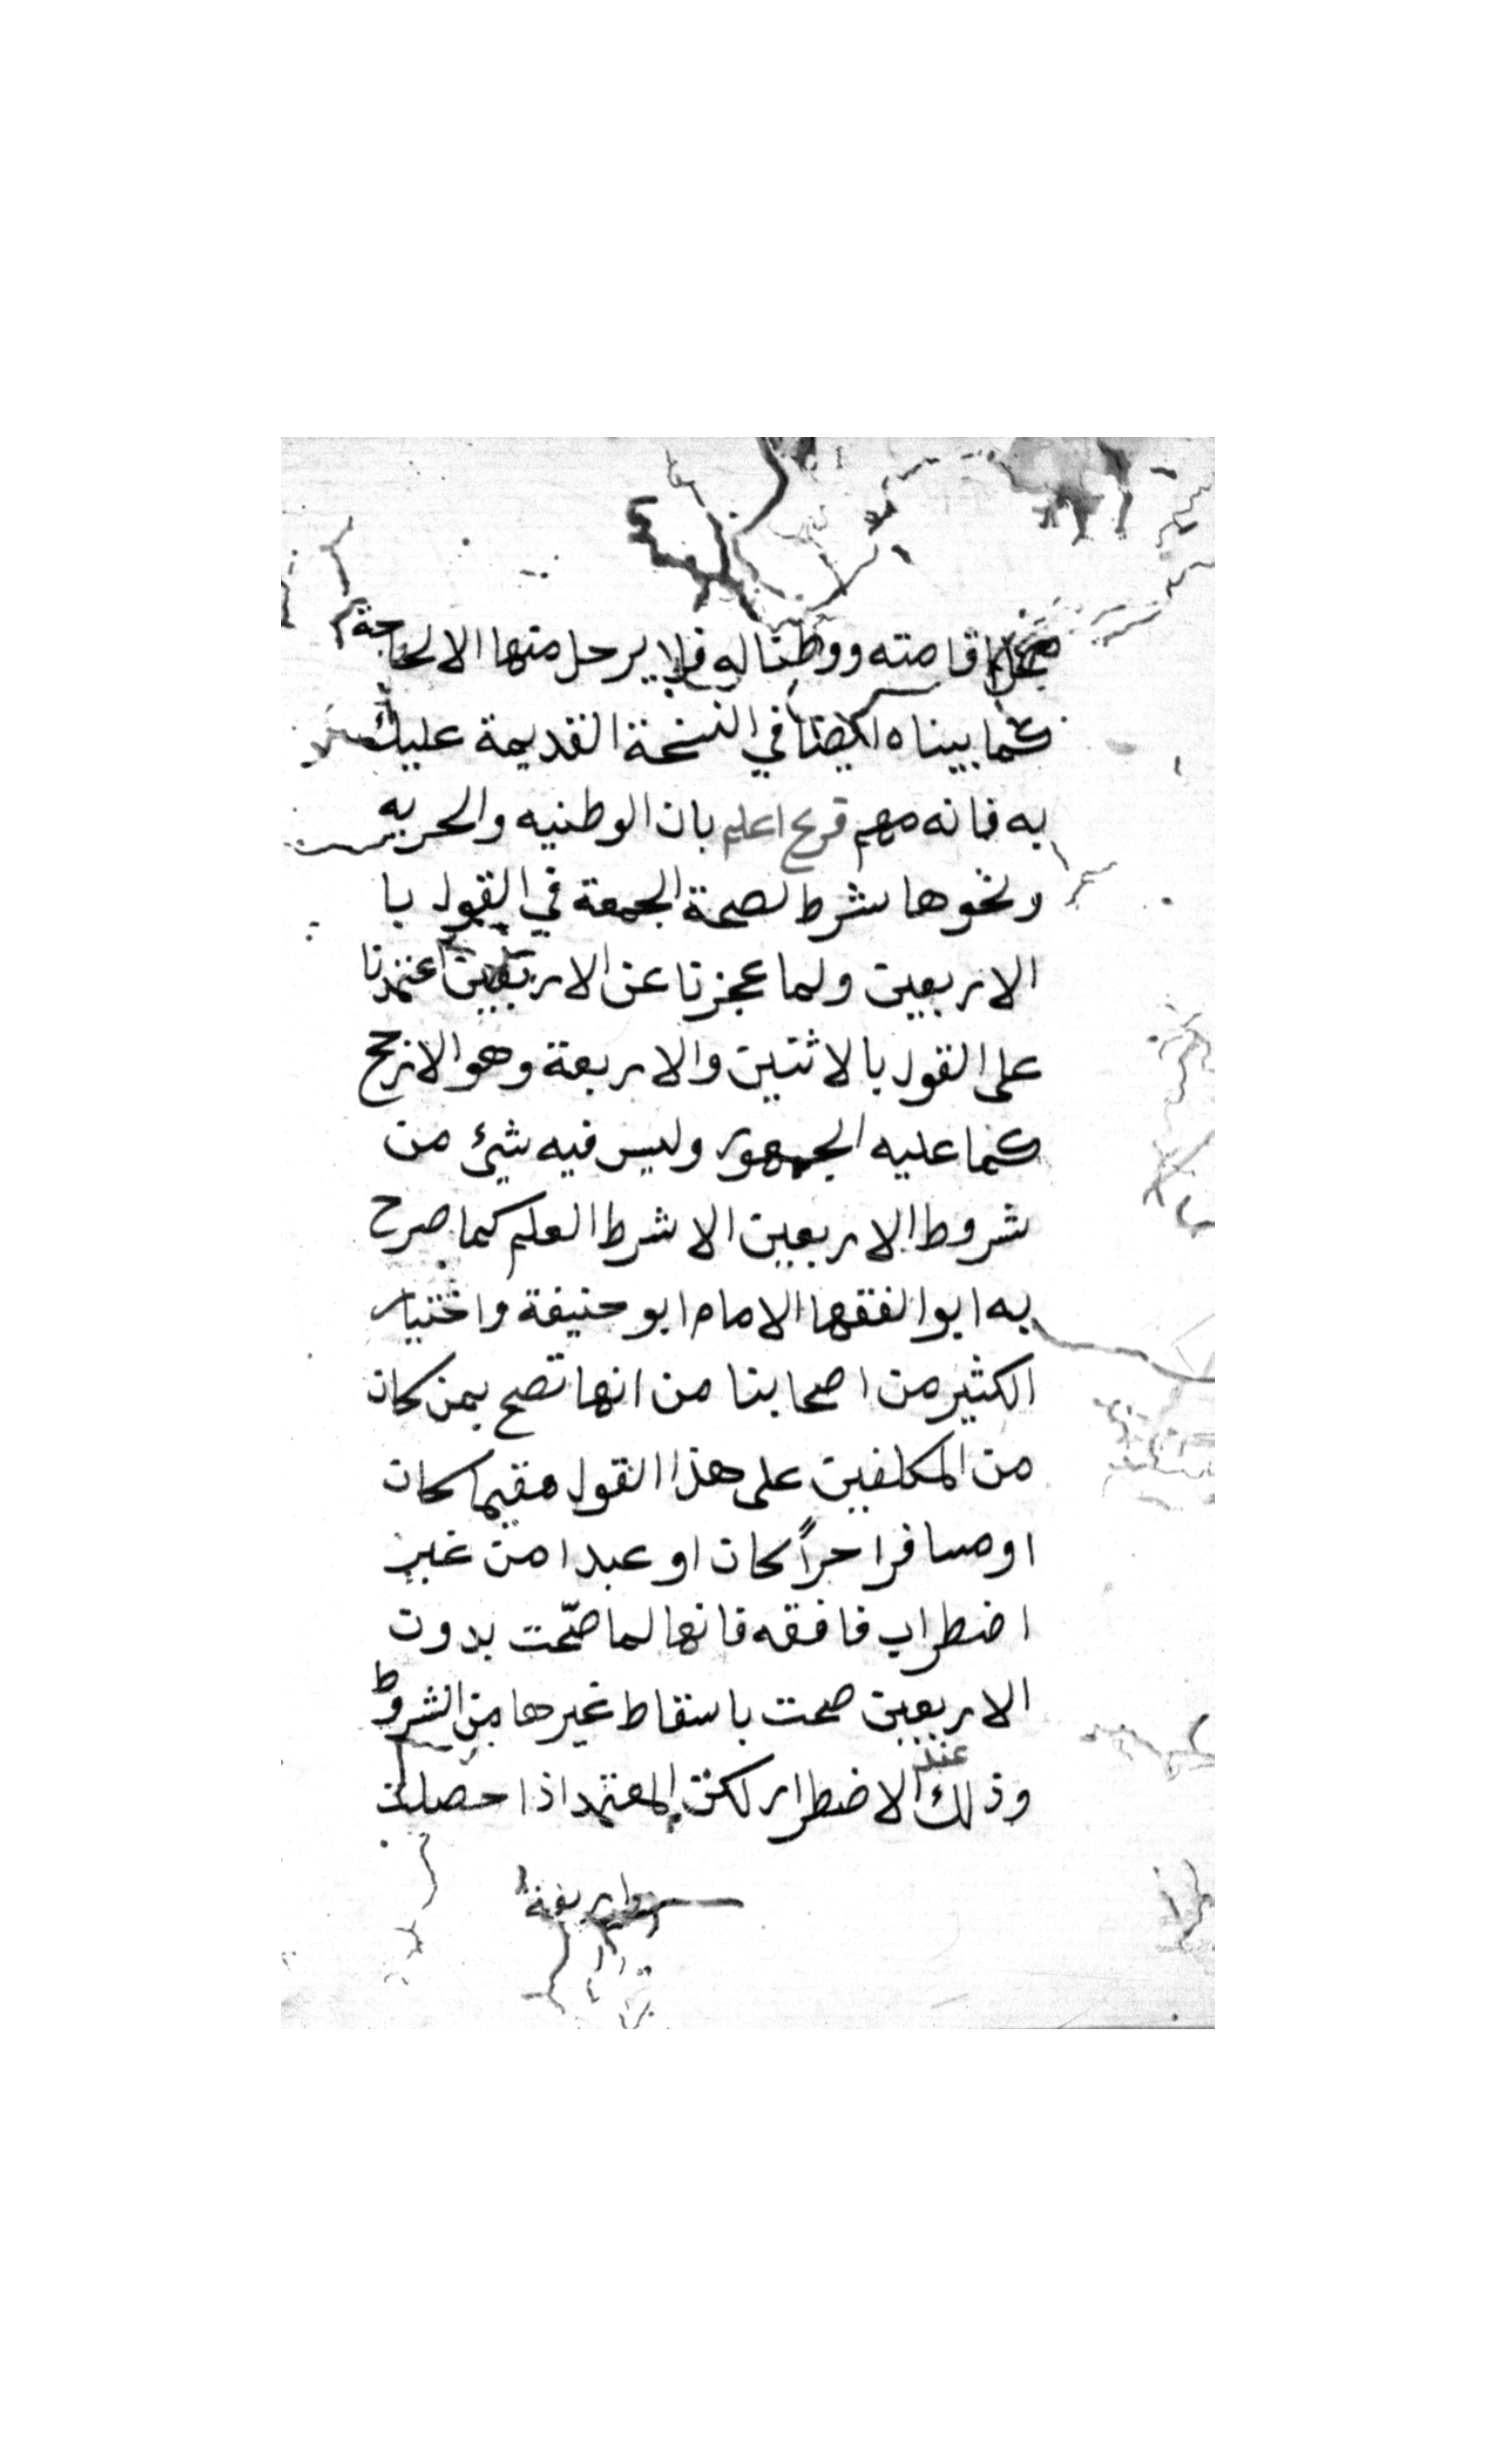 محلا اقامته ووطنا له فلا يرحل منها الا لحاجة
كما بيناه ايضا في النسخة القديمة عليك
به فانه مهم فرع اعلم بان الوطنيه والحريه
ونحوها شرط لصحة الجمعة في القول با
الاربعين ولما عجزنا عن الاربعين اعتمدنا
على القول بالاثنين والاربعة وهو الارجح
كما عليه الجمهور وليس فيه شيئ من
شروط الاربعين الا شرط العلم كما صرح
به ابوا الفقها الامام ابو حنيفة واختيار
الكثير من اصحابنا من انها تصح بمن كان
من المكلفين على هذا القول مقيما كان
او مسافرا حراً كان او عبدا من غير
اضطراب فافقه فانها لما صّحت بدون
الاربعين صحت باسقاط غيرها من الشروط
وذلك عند الاضطرار لكن المعتمد اذا حصلت
واربعة